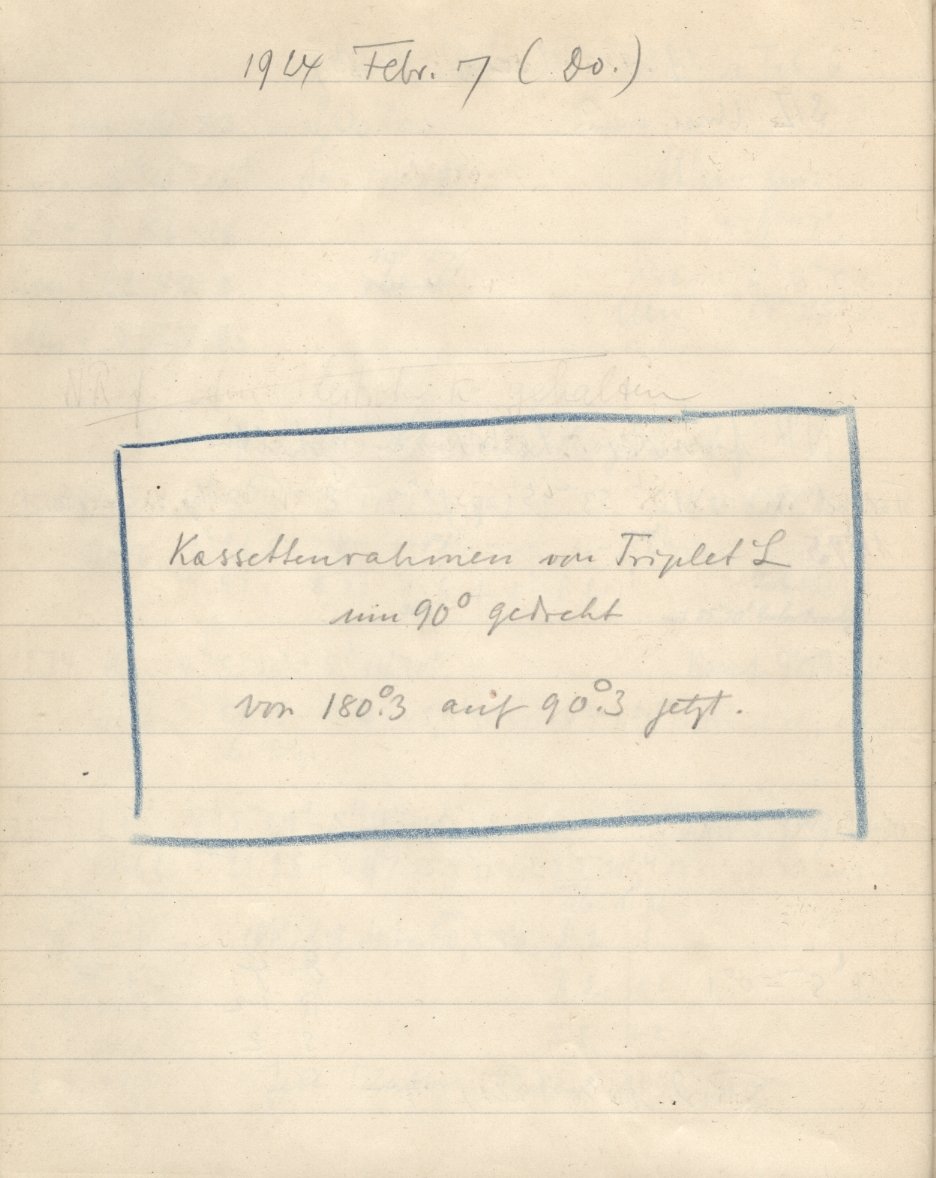 1924 Febr. 7 (Do.)
gehalten
Kassettenrahmen von Triplet L
um 90° gedreht
von 180°.3 auf 90°.3 jetzt.